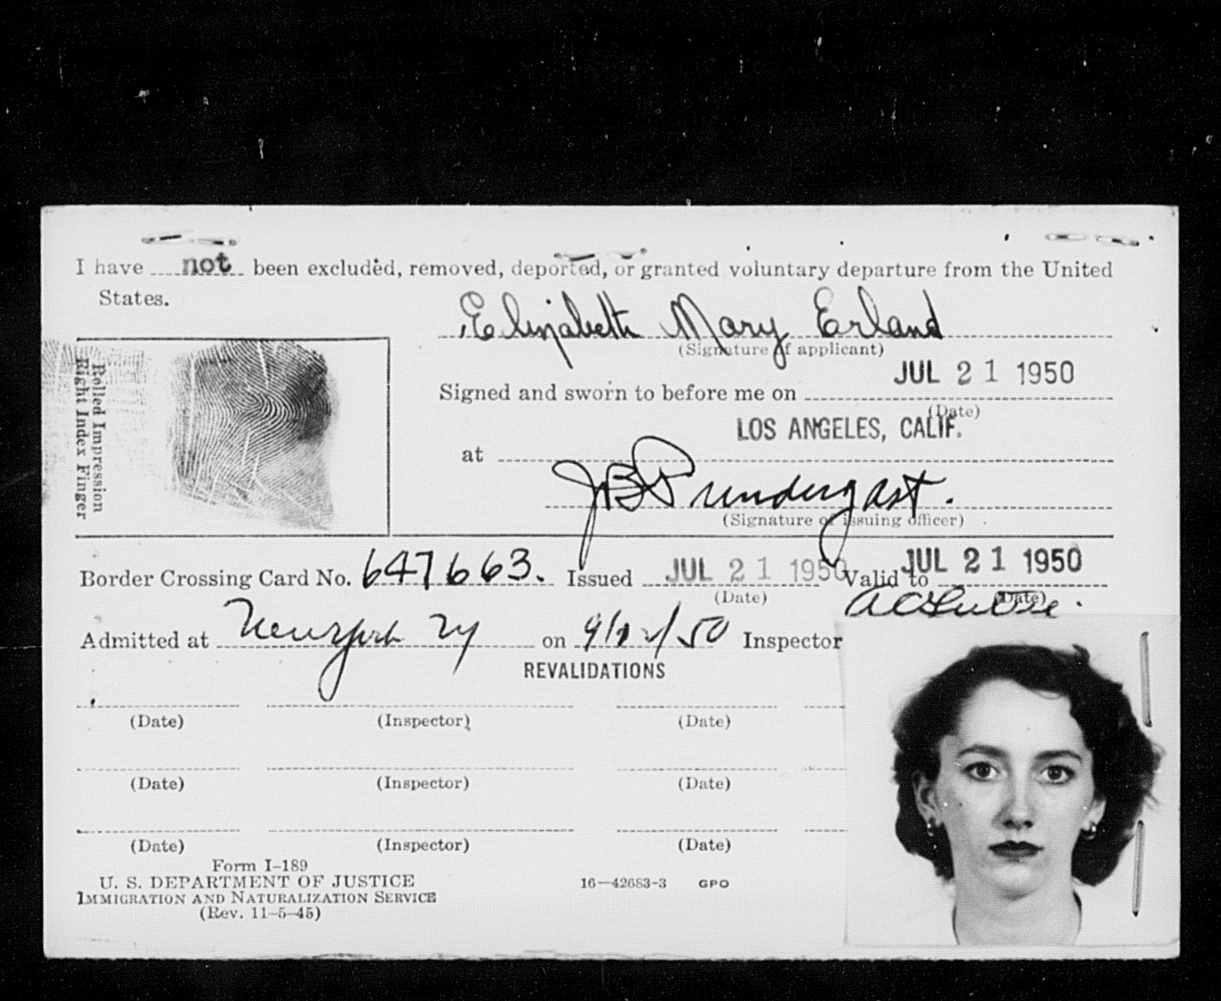 I have not been excluded, removed, deported, or granted voluntary departure from the United
States.
Elizabeth Mary Erland
(Signature of applicant)
Rolled Impression
Right Index Finger
JUL 21 1950
Signed and sworn to before me on
(Date)
LOS ANGELES, CALIF.
at
J B Prendergast.
(Signature of issuing officer)
Border Crossing Card No. 647663. Issued JUL 21 1950 Valid to JUL 21 1950
(Date) (Date)
Admitted at New York NY on Inspector
REVALIDATIONS
(Date) (Inspector) (Date)
(Date) (Inspector) (Date)
(Date) (Inspector) (Date)
Form I-189
U. S. DEPARTMENT OF JUSTICE
16—42683-3 GPO
IMMIGRATION AND NATURALIZATION SERVICE
(Rev. 11-5-45)